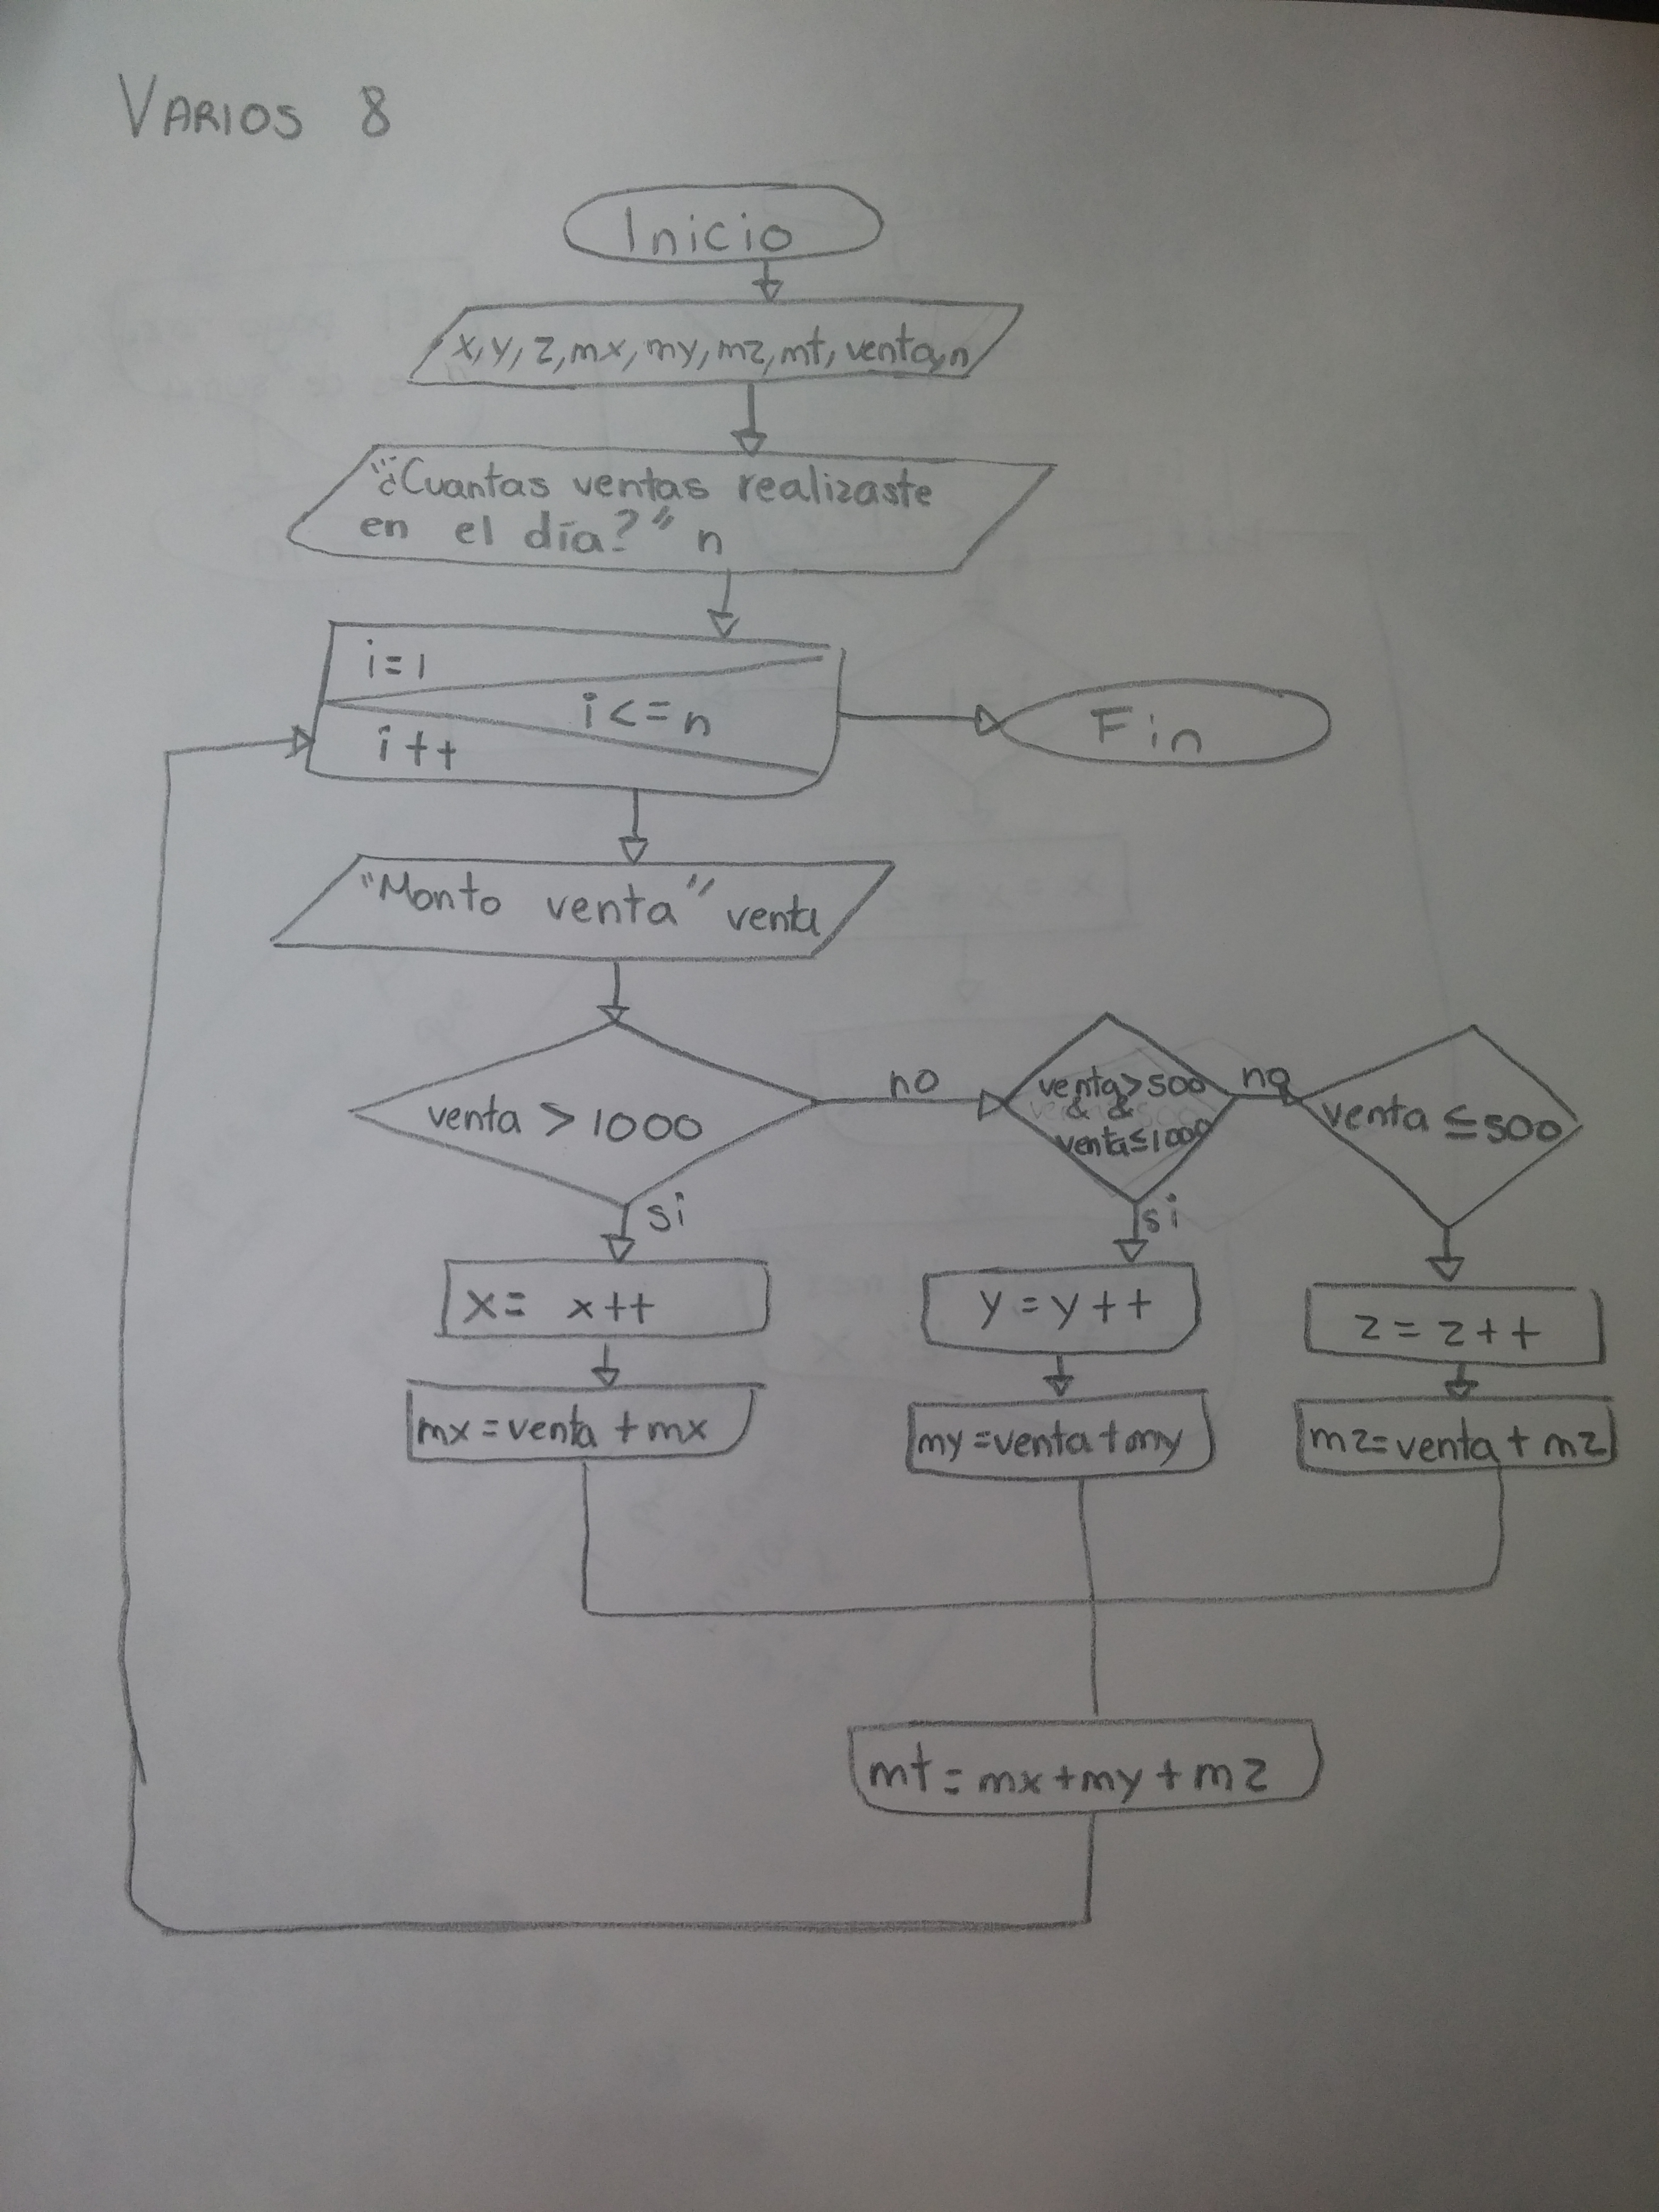 VARIOS 8
Inicio
x, y, z, mx, my, mz, mt, venta, n
"¿Cuantas ventas realizaste
en el día?" n
i=1
i<=n
i++
Fin
"Monto venta" venta
venta > 1000
no
venta>500
& &
venta≤1000
no
venta ≤500
si
si
x= x++
y=y++
z=z++
mx=venta+mx
my=venta+my
mz=venta+mz
mt=mx+my+mz